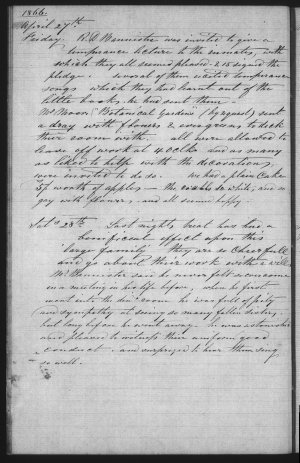 1866.
April 27th
Friday. R.A. Bannister was invited to give a
temperance lecture to the inmates, with
which they all seemed pleased - & 15 signed the
pledge - several of them recited temperance
songs which they had learnt out of the
little books he had sent them -
Mr Moore (Botanical Gardens (by request) sent
a dray with flowers & evergreens to deck
their room with. all were allowed to
leave off work at 4 oClk and as many
as liked to help with the decorations,
were invited to do so. We had a plain Cake
5/ worth of apples - the
gay with flowers, and all seemed happy.
Sat. 28th. Last nights treat has had a
beneficial effect upon this
large family. They are so cheerful
and go about their work with a will
Mr Bannister said he never felt so overcome
in a meeting in his life before, when he first
went into the room he was full of pity
and sympathy at seeing so many fallen sisters,
but long before he went away he was astonished
and pleased to witness their uniform good
conduct - and surprized to hear them sing
so well.